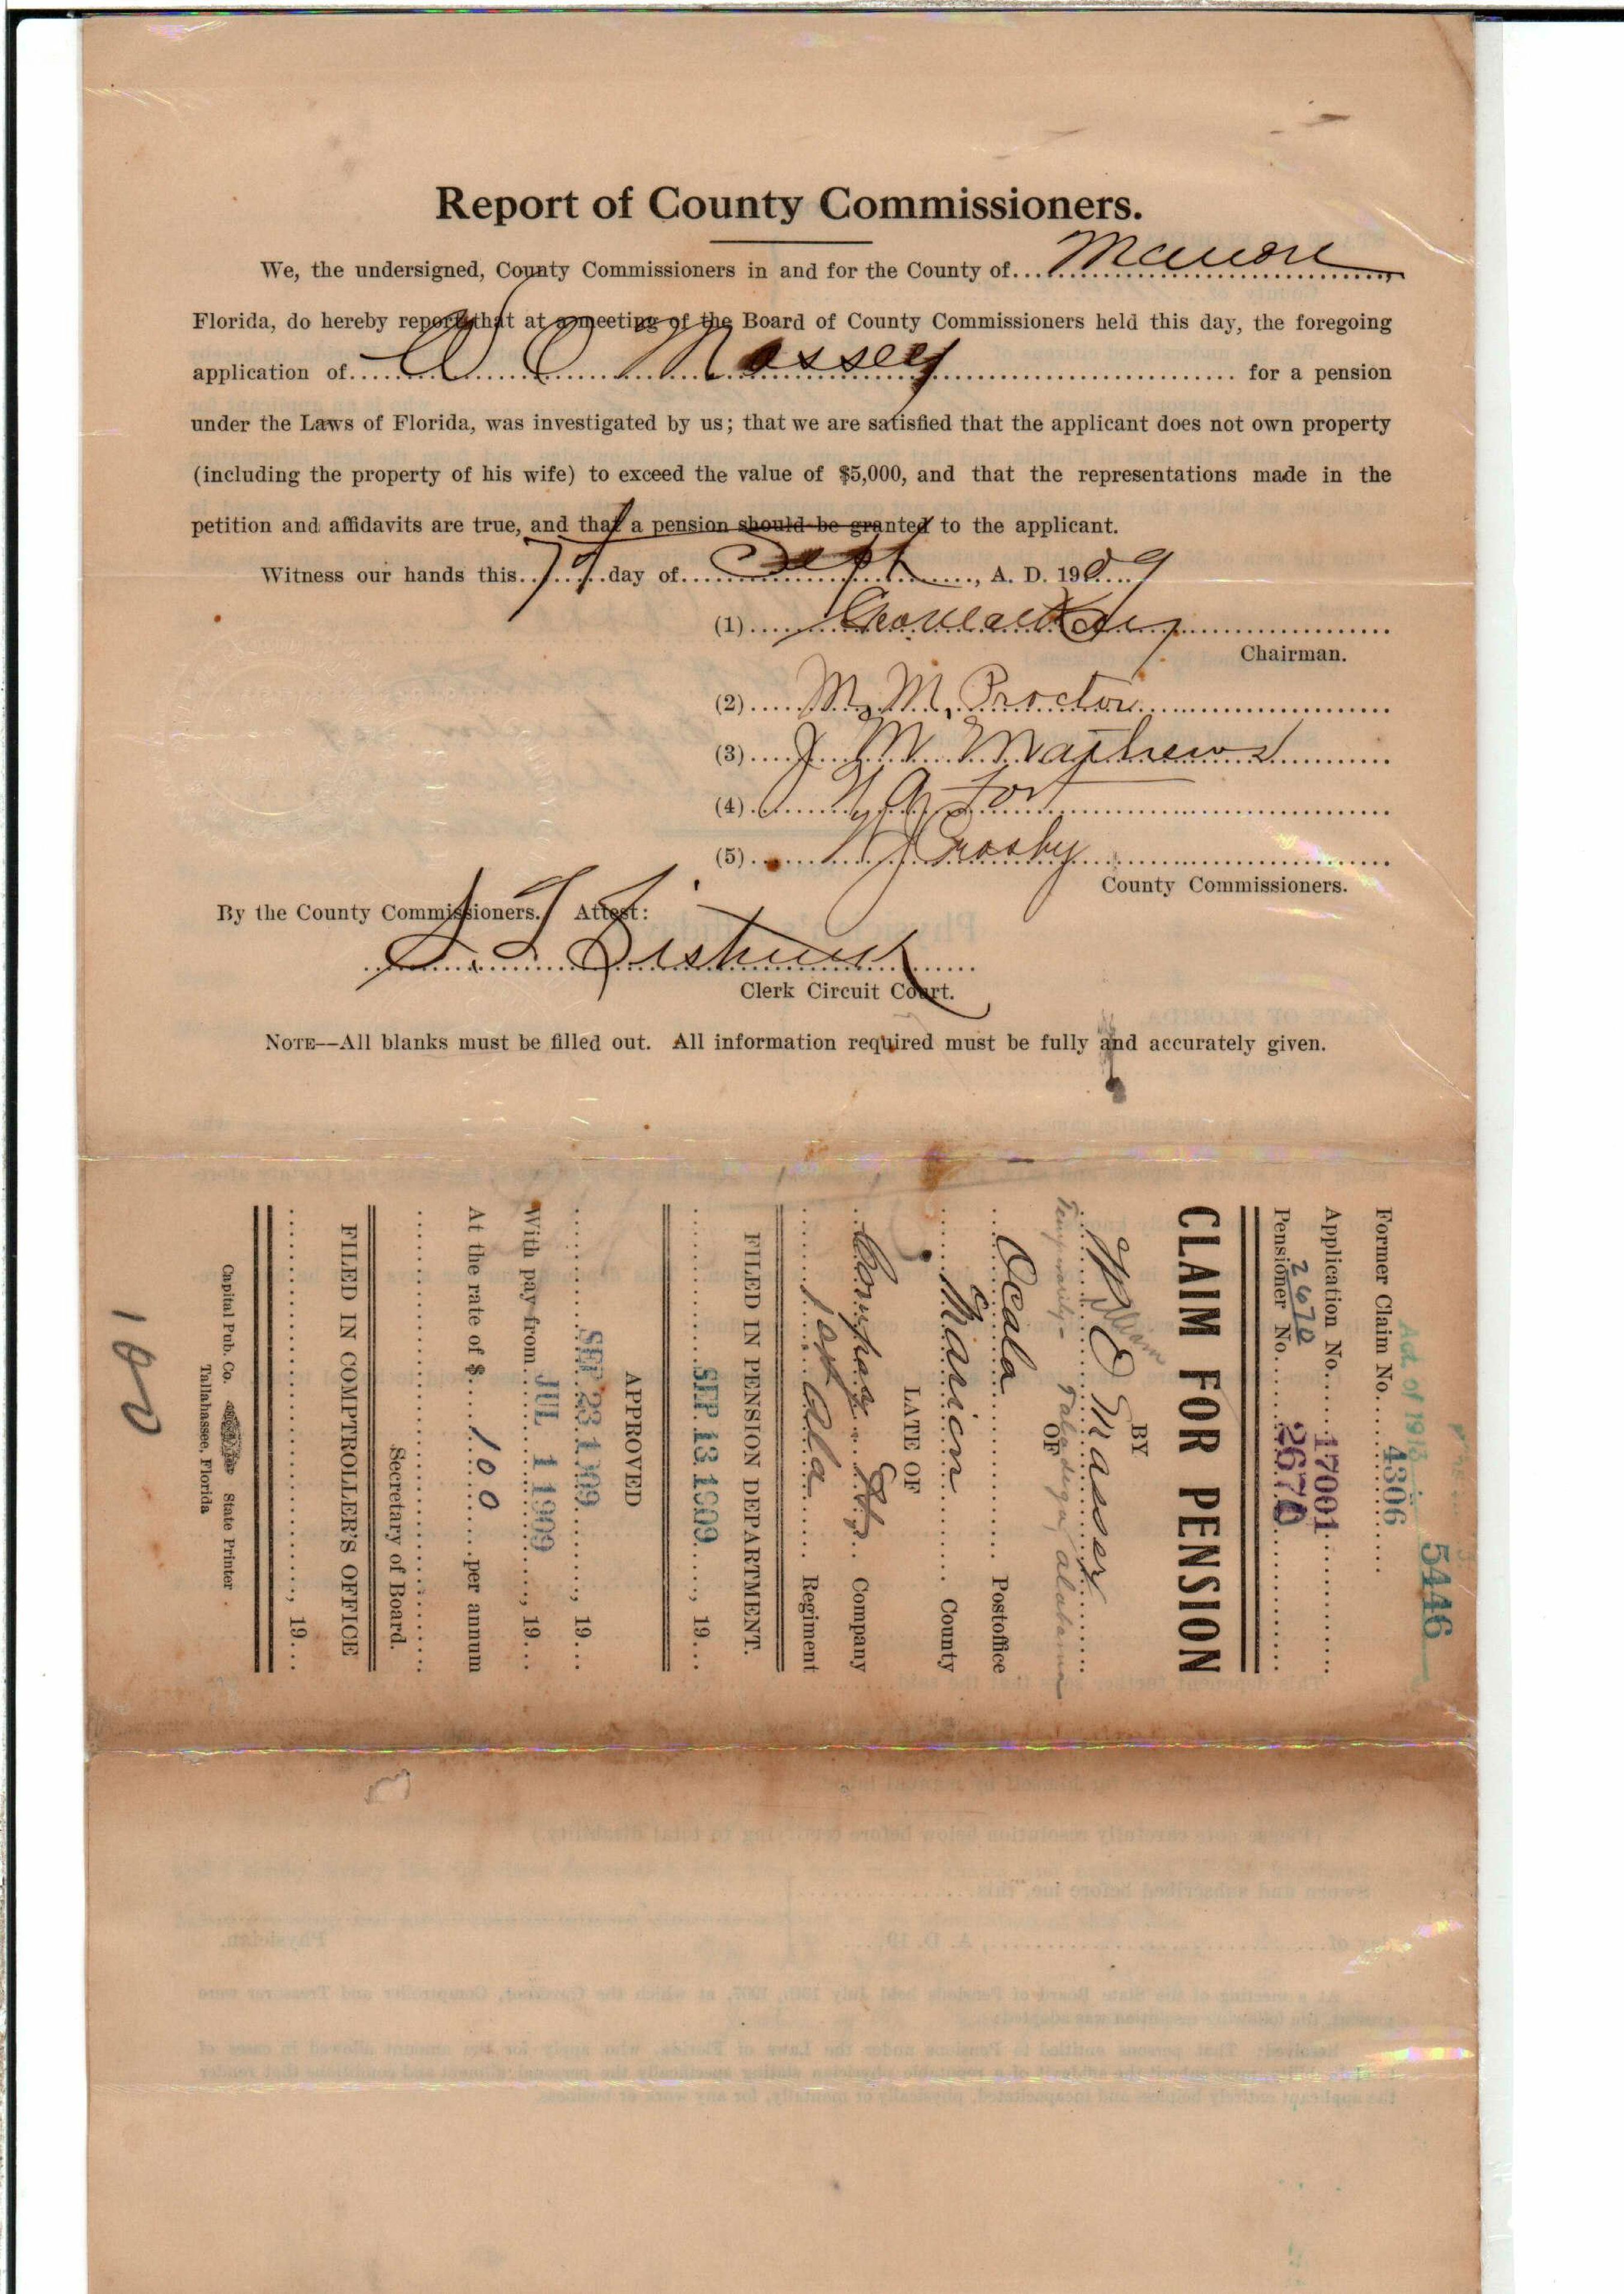 Report of County Commissioners.
We, the undersigned, County Commissioners in and for the County of... Marion
Florida, do hereby report that at a meeting of the Board of County Commissioners held this day, the foregoing
application of W O Massey for a pension
under the Laws of Florida, was investigated by us; that we are satisfied that the applicant does not own property
(including the property of his wife) to exceed the value of $5,000, and that the representations made in the
petition and affidavits are true, and that a pension should be granted to the applicant.
Witness our hands this 7 day of Sept, A. D. 1909
(1)
Chairman.
(2) M. M. Proctor
(3) J. M. Mathews
(4) Fort
(5) Crosby
County Commissioners.
By the County Commissioners. Attest:
S. T. Sistrunk
Clerk Circuit Court.
NOTE—All blanks must be filled out. All information required must be fully and accurately given.
Act of 1913
5446
Former Claim No. 4306
Application No. 17001
2670
Pensioner No. 2670
CLAIM FOR PENSION
BY
W O Massey
OF
Temporarily - Taladega, Alabama
Ocala Postoffice
Marion County
LATE OF
Company Company
1st Ala Regiment
FILED IN PENSION DEPARTMENT.
SEP 13 1909, 19
APPROVED
SEP 23 1909, 19
With pay from JUL 1 1909, 19
At the rate of $ 100 per annum
Secretary of Board.
FILED IN COMPTROLLER'S OFFICE
, 19
Capital Pub. Co. State Printer
Tallahassee, Florida